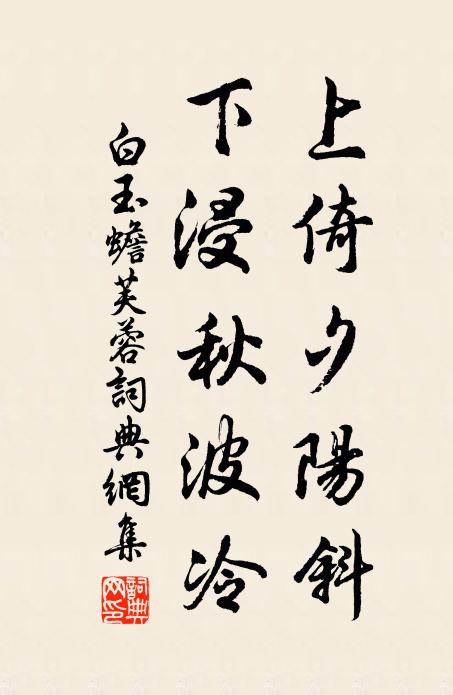 上倚夕陽斜
下浸秋波冷
白玉蟾芙蓉詞典網集
詞典網印